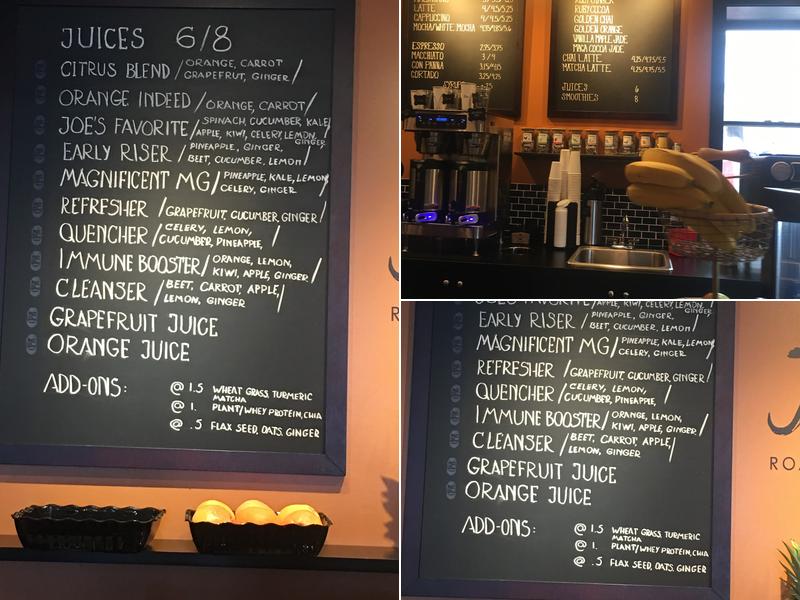 JUICES 6/8
CITRUS BLEND / ORANGE, CARROT
GRAPEFRUIT, GINGER /
ORANGE INDEED / ORANGE, CARROT /
JOE'S FAVORITE / SPINACH, CUCUMBER, KALE
APPLE, KIWI, CELERY, LEMON,
GINGER
EARLY RISER / PINEAPPLE, GINGER,
BEET, CUCUMBER, LEMON /
MAGNIFICENT MG / PINEAPPLE, KALE, LEMON,
CELERY, GINGER
REFRESHER / GRAPEFRUIT, CUCUMBER, GINGER /
QUENCHER / CELERY, LEMON,
CUCUMBER, PINEAPPLE, /
IMMUNE BOOSTER / ORANGE, LEMON,
KIWI, APPLE, GINGER /
CLEANSER / BEET, CARROT, APPLE,
LEMON, GINGER /
GRAPEFRUIT JUICE
ORANGE JUICE
ADD-ONS:
@ 1.5 WHEAT GRASS, TURMERIC
MATCHA
@ 1. PLANT/WHEY PROTEIN, CHIA
@ .5 FLAX SEED, OATS, GINGER
LATTE
CAPPUCCINO
MOCHA/WHITE MOCHA
ESPRESSO
MACCHIATO 3/4
CON PANNA
CORTADO
RUBY COCOA
GOLDEN CHAI
GOLDEN ORANGE
VANILLA MAPLE JADE
MACA COCOA JADE
CHAI LATTE
MATCHA LATTE
JUICES 6
SMOOTHIES 8
JOE'S FAVORITE / APPLE, KIWI, CELERY, LEMON,
GINGER
EARLY RISER / PINEAPPLE, GINGER,
BEET, CUCUMBER, LEMON /
MAGNIFICENT MG / PINEAPPLE, KALE, LEMON,
CELERY, GINGER
REFRESHER / GRAPEFRUIT, CUCUMBER, GINGER /
QUENCHER / CELERY, LEMON,
CUCUMBER, PINEAPPLE, /
IMMUNE BOOSTER / ORANGE, LEMON,
KIWI, APPLE, GINGER /
CLEANSER / BEET, CARROT, APPLE,
LEMON, GINGER /
GRAPEFRUIT JUICE
ORANGE JUICE
ADD-ONS:
@ 1.5 WHEAT GRASS, TURMERIC
MATCHA
@ 1. PLANT/WHEY PROTEIN, CHIA
@ .5 FLAX SEED, OATS, GINGER
ROA